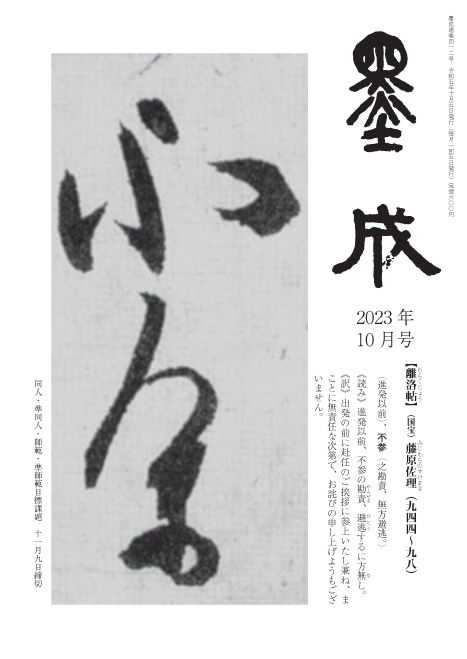 墨成通巻四一二号　令和五年十月五日発行（毎月一回五日発行）定価六〇〇円
墨成
2023年
10月号
【離洛帖】（国宝）藤原佐理（九四四〜九八）
（進発以前）、不参（之勘責、無方避逃。）
《読み》進発以前、不参の勘責、避逃するに方無し。
《訳》出発の前に赴任のご挨拶に参上いたし兼ね、ま
ことに無責任な次第で、お詫びの申し上げようもござ
いません。
不参
同人・準同人・師範・準師範目標課題　十一月九日締切